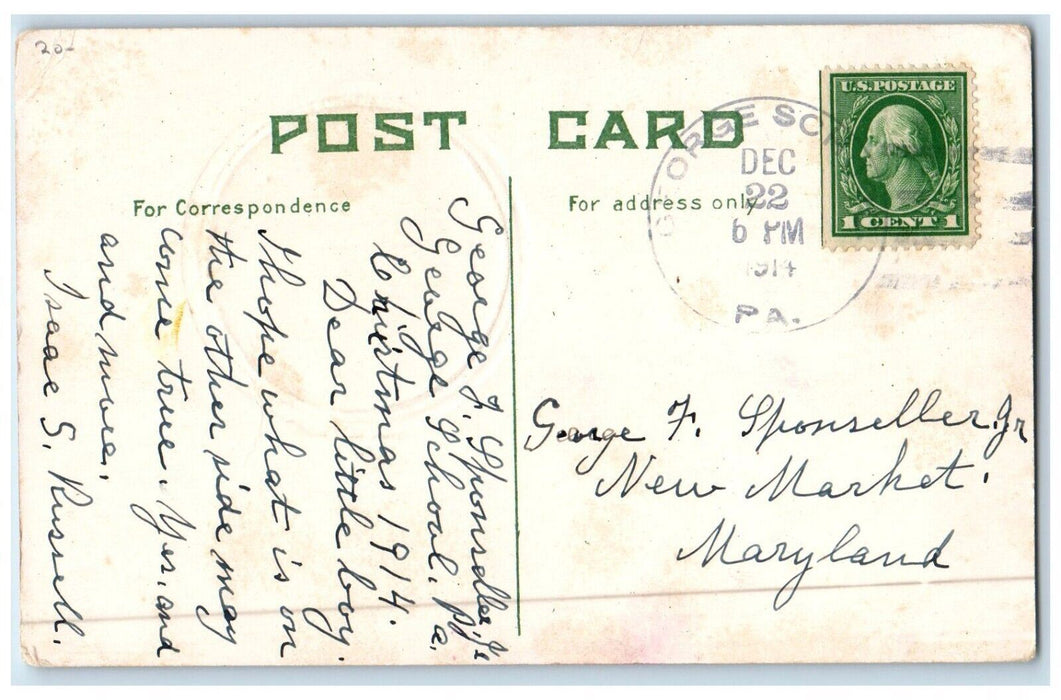 20-
POST CARD
For Correspondence
For address only
GEORGE SC
DEC
22
6 PM
1914
PA.
U.S. POSTAGE
1 CENT 1
George F. Sponseller, Jr
George School, Pa.
Christmas 1914.
Dear little boy.
I hope what is on
the other side may
come true. Yes, and
and more.
Isaac S. Russell.
George F. Sponseller. Jr
New Market.
Maryland